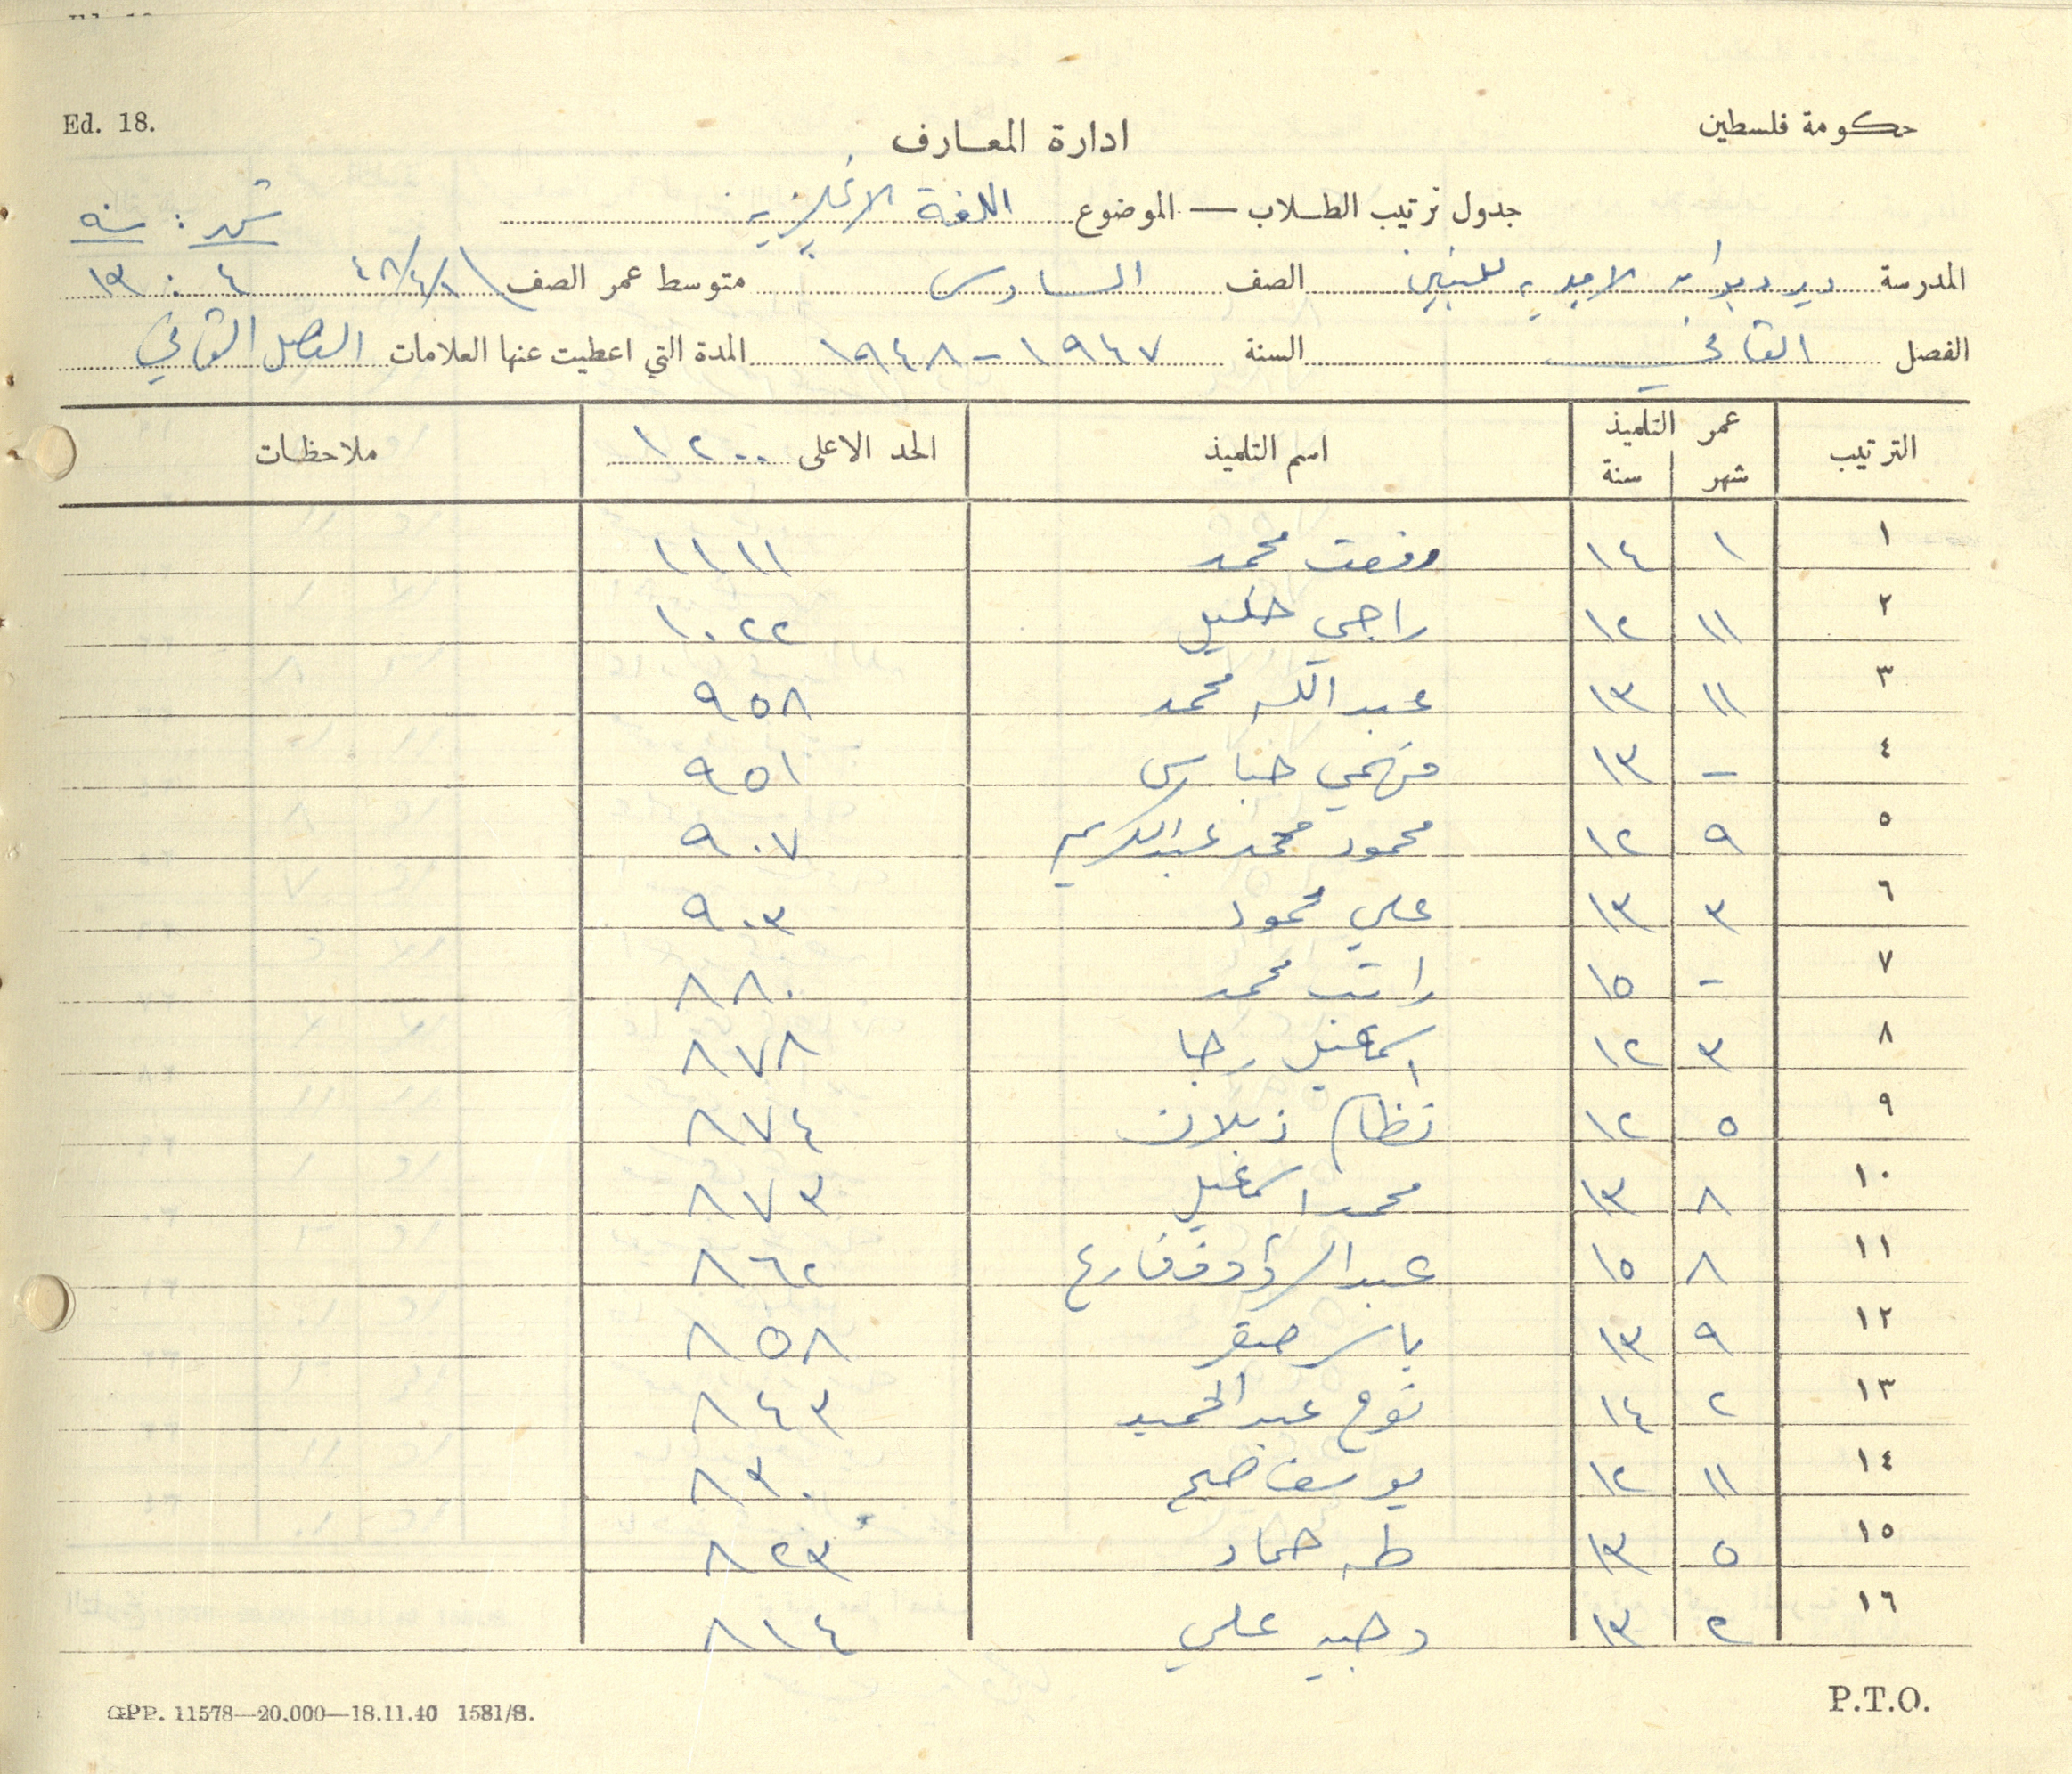 Ed. 18.
حكومة فلسطين
ادارة المعارف
جدول ترتيب الطلاب — الموضوع اللغة الانجليزية
شهر : سنه
المدرسة دير ديوان الاميرية للبنين الصف السادس متوسط عمر الصف ٤٨/٤/١ ٤ : ١٣
الفصل الثاني السنة ١٩٤٧ - ١٩٤٨ المدة التي اعطيت عنها العلامات الفصل الثاني
الترتيب عمر التلميذ شهر سنة اسم التلميذ الحد الاعلى ١٢٠٠ ملاحظات
١ ١ ١٤ رفعت محمد ١١١١
٢ ١١ ١٢ راجي خليل ١٠٢٢
٣ ١١ ١٣ عبد الله محمد ٩٥٨
٤ - ١٣ فهمي ٩٥١
٥ ٩ ١٢ محمود محمد عبد الكريم ٩٠٧
٦ ٣ ١٣ علي محمود ٩٠٣
٧ - ١٥ راتب محمد ٨٨٠
٨ ٣ ١٢ اسماعيل رجا ٨٧٨
٩ ٥ ١٢ نظام ٨٧٤
١٠ ٨ ١٣ محمد اسماعيل ٨٧٣
١١ ٨ ١٥ عبد الرؤوف فارع ٨٦٢
١٢ ٩ ١٣ ياسر صقر ٨٥٨
١٣ ٢ ١٤ نوح عبد الحميد ٨٤٣
١٤ ١١ ١٢ يوسف ٨٣٠
١٥ ٥ ١٣ طه حماد ٨٢٣
١٦ ٢ ١٣ وجيه علي ٨١٤
GPP. 11578—20.000—18.11.40 1581/S.
P.T.O.